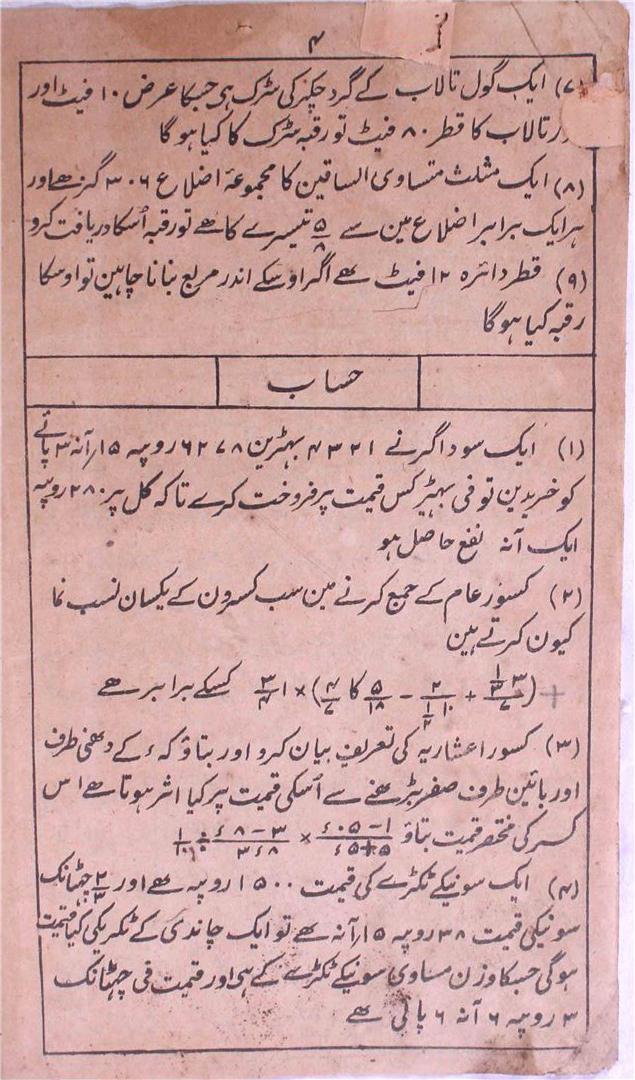 ۴
(۷) ایک گول تالاب کے گرد چکر کی سڑک ہی جسکا عرض ۱۰ فیٹ اور
تالاب کا قطر ۸۰ فیٹ تو رقبہ سڑک کا کیا ہوگا
(۸) ایک مثلث متساوی الساقین کا مجموعۂ اضلاع ۳۰۶ گز ہے اور
ہر ایک برابر اضلاع مین سے ۵/۸ تیسرے کا ہے تو رقبہ اُسکا دریافت کرو
(۹) قطر دائرہ ۱۲ فیٹ ہے اگر اوسکے اندر مربع بنانا چاہین تو اوسکا
رقبہ کیا ہوگا
حساب
(۱) ایک سوداگر نے ۴۳۲۱ بہیڑین ۶۲۷۸ روپیہ ۱۵ ؍آنہ ۳ پائے
کو خریدین تو فی بہیڑ کس قیمت پر فروخت کرے تاکہ کل پر ۲۸۰ روپیہ
ایک آنہ نفع حاصل ہو
(۲) کسور عام کے جمع کرنے مین سب کسرون کے یکسان نسب نما
کیون کرتے ہین
کسکے برابر ہے
(۳) کسور اعشاریہ کی تعریف بیان کرو اور بتاؤ کہ ء کے دہنی طرف
اور بائین طرف صفر بڑہنے سے اُسکی قیمت پر کیا اثر ہوتا ہے اس
کسر کی مختصر قیمت بتاؤ
(۴) ایک سونیکے ٹکڑے کی قیمت ۱۵۰۰ روپیہ ہے اور ۲/۳ چہٹانک
سونیکی قیمت ۳۸ روپیہ ۱۵ ؍آنہ ہے تو ایک چاندی کے ٹکریکی کیا قیمت
ہوگی جسکا وزن مساوی سونیکے ٹکڑے کے ہی اور قیمت فی چہٹانک
۳ روپیہ ۶ آنہ ۶ پائی ہے